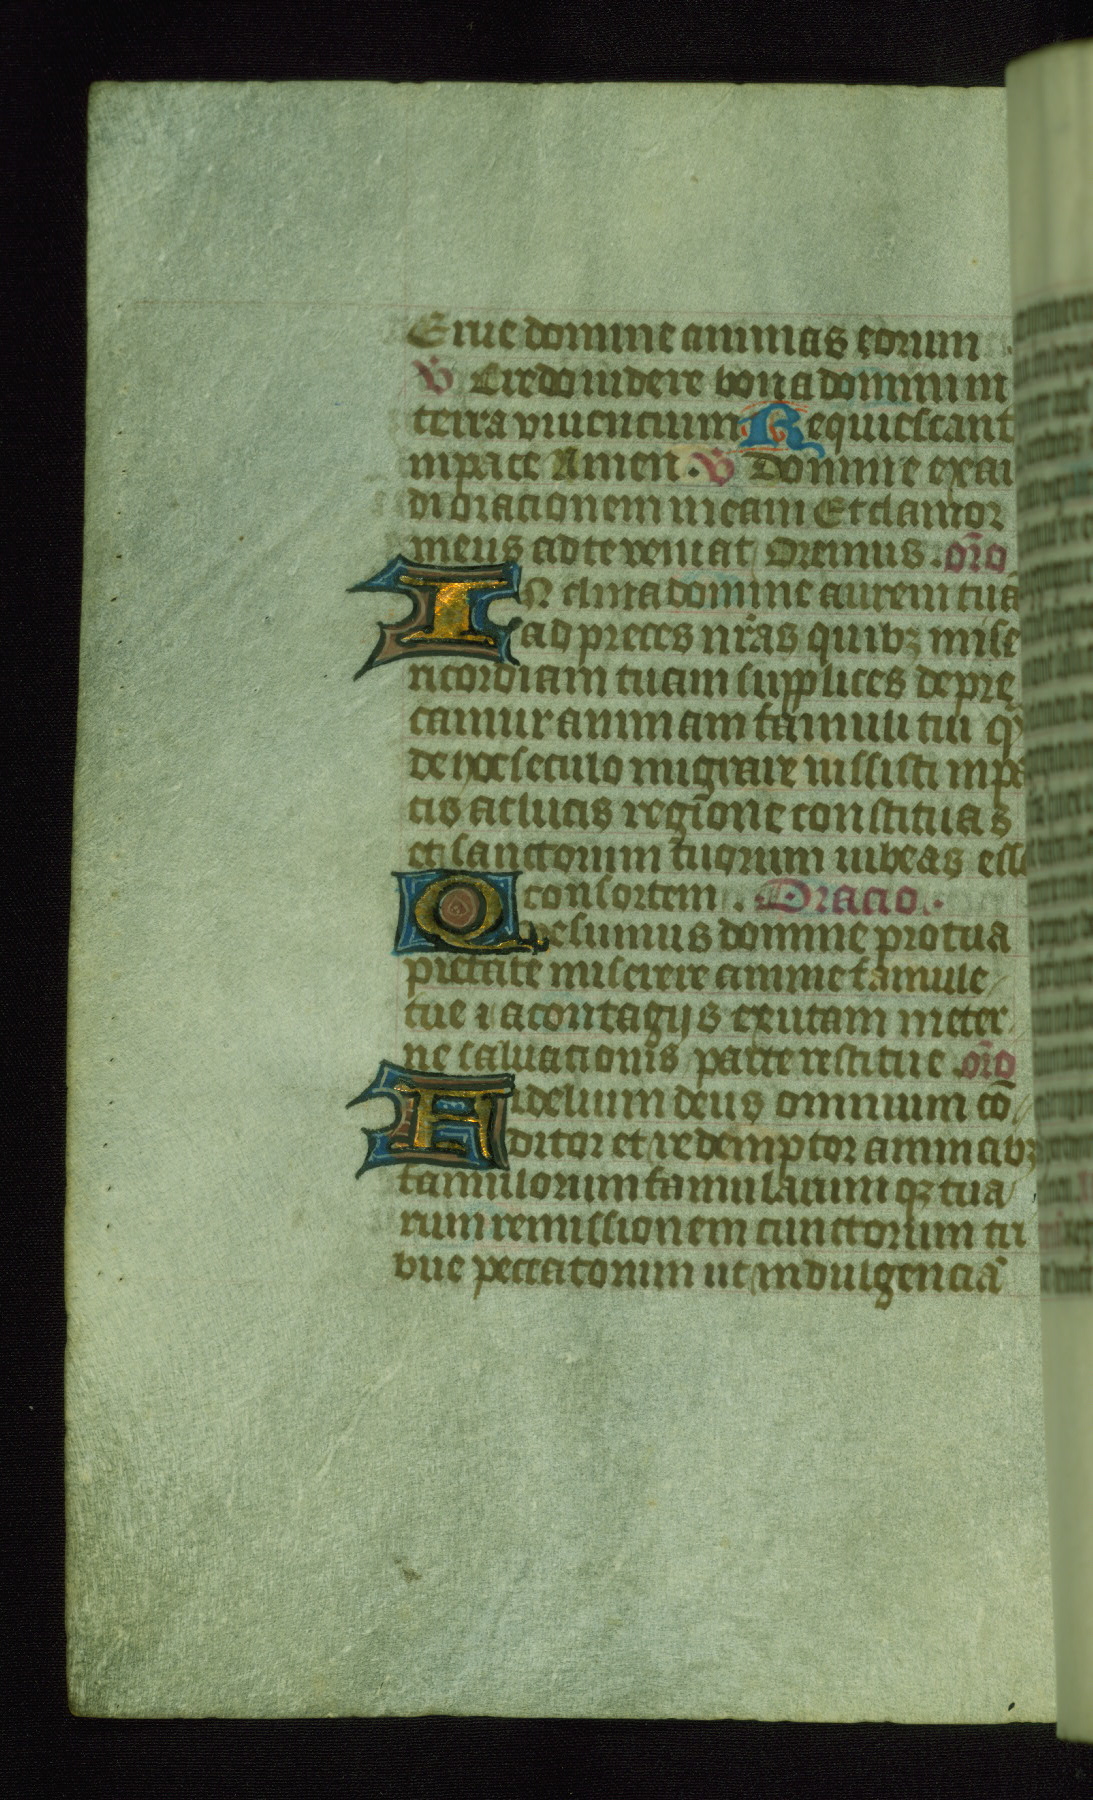 Erue domine animas eorum
V Credo videre bona domini in
terra viventium Requiescant
in pace Amen. V Domine exau
di orationem meam Et clamor
meus ad te veniat Oremus. orō
INclina domine aurem tua
ad preces nr̄as quibꝫ mise
ricordiam tuam supplices depre
camur animam famuli tui q
de hoc seculo migrare iussisti in pa
cis ac lucis regione constituas
et sanctorum tuorum iubeas esse
consortem. Oracio.
Quesumus domine pro tua
pietate miserere anime famule
tue ⁊ a contagijs exutam in eter
ne saluacionis partem restitue. orō
Fidelium deus omnium cō
ditor et redemptor animabꝫ
famulorum famularum qꝫ tua
rum remissionem cunctorum tri
bue peccatorum ut indulgenciā